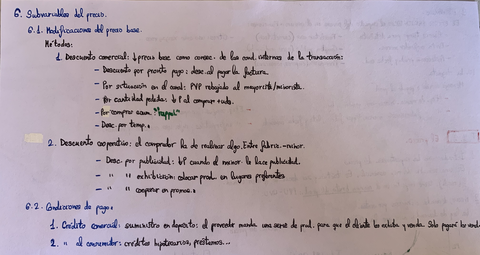 6. Subvariables del precio.
6.1. Modificaciones del precio base.
Métodos:
1. Descuento comercial: ↓precio base como consec. de las cond. internas de la transacción:
- Descuento por pronto pago: desc. al pagar la factura.
- Por situación en el canal: PVP rebajado al mayorista/minorista.
- Por cantidad pedida: ↓P al comprar +uds.
- Por comprar acum. "Rappel"
- Desc. por temp.
2. Descuento cooperativo: el comprador ha de realizar algo. Entre fabric.-minor.
- Desc. por publicidad: ↓P cuando el minor. le hace publicidad.
- " " exhibición: colocar prod. en lugares preferentes
- " " cooperar en promoc.
6.2. Condiciones de pago.
1. Crédito comercial: suministro en depósito: el proveedor manda una serie de prod. para que el cliente los exhiba y venda. Solo pagará los
2. " al consumidor: créditos hipotecarios, préstamos...